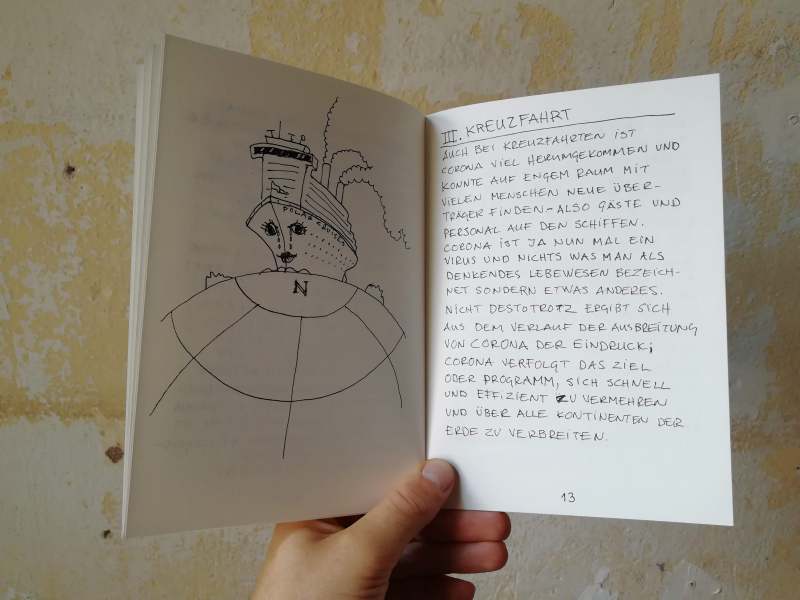 POLAR CRUISES
N
III. KREUZFAHRT
AUCH BEI KREUZFAHRTEN IST
CORONA VIEL HERUMGEKOMMEN UND
KONNTE AUF ENGEM RAUM MIT
VIELEN MENSCHEN NEUE ÜBER-
TRÄGER FINDEN – ALSO GÄSTE UND
PERSONAL AUF DEN SCHIFFEN.
CORONA IST JA NUN MAL EIN
VIRUS UND NICHTS WAS MAN ALS
DENKENDES LEBEWESEN BEZEICH-
NET SONDERN ETWAS ANDERES.
NICHT DESTOTROTZ ERGIBT SICH
AUS DEM VERLAUF DER AUSBREITUNG
VON CORONA DER EINDRUCK;
CORONA VERFOLGT DAS ZIEL
ODER PROGRAMM, SICH SCHNELL
UND EFFIZIENT ZU VERMEHREN
UND ÜBER ALLE KONTINENTEN DER
ERDE ZU VERBREITEN.
13